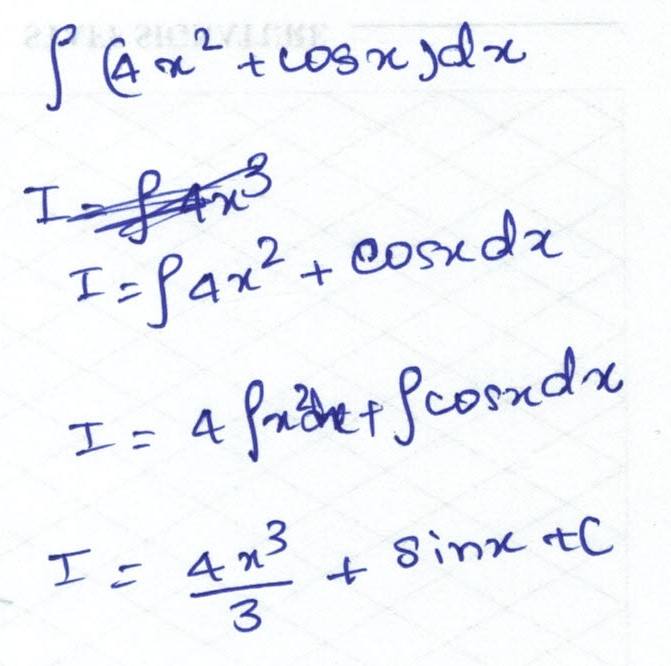 ∫ (4x² + cosx)dx
I = ∫4x³
I = ∫4x² + cosxdx
I = 4∫x²dx + ∫cosxdx
I = 4x³/3 + sinx + C